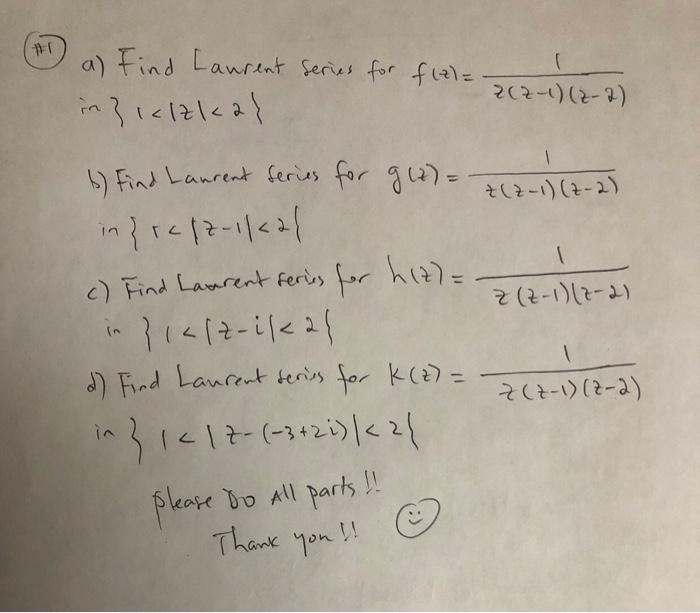 #1
a) Find Laurent Series for f(z) = 1 / z(z-1)(z-2)
in } 1<|z|<2 }
b) Find Laurent Series for g(z) = 1 / z(z-1)(z-2)
in } 1<|z-1|<2 {
c) Find Laurent Series for h(z) = 1 / z(z-1)(z-2)
in } 1<|z-i|<2 {
d) Find Laurent Series for k(z) = 1 / z(z-1)(z-2)
in } 1<|z-(-3+2i)|<2 {
Please Do All parts !!
Thank you !!